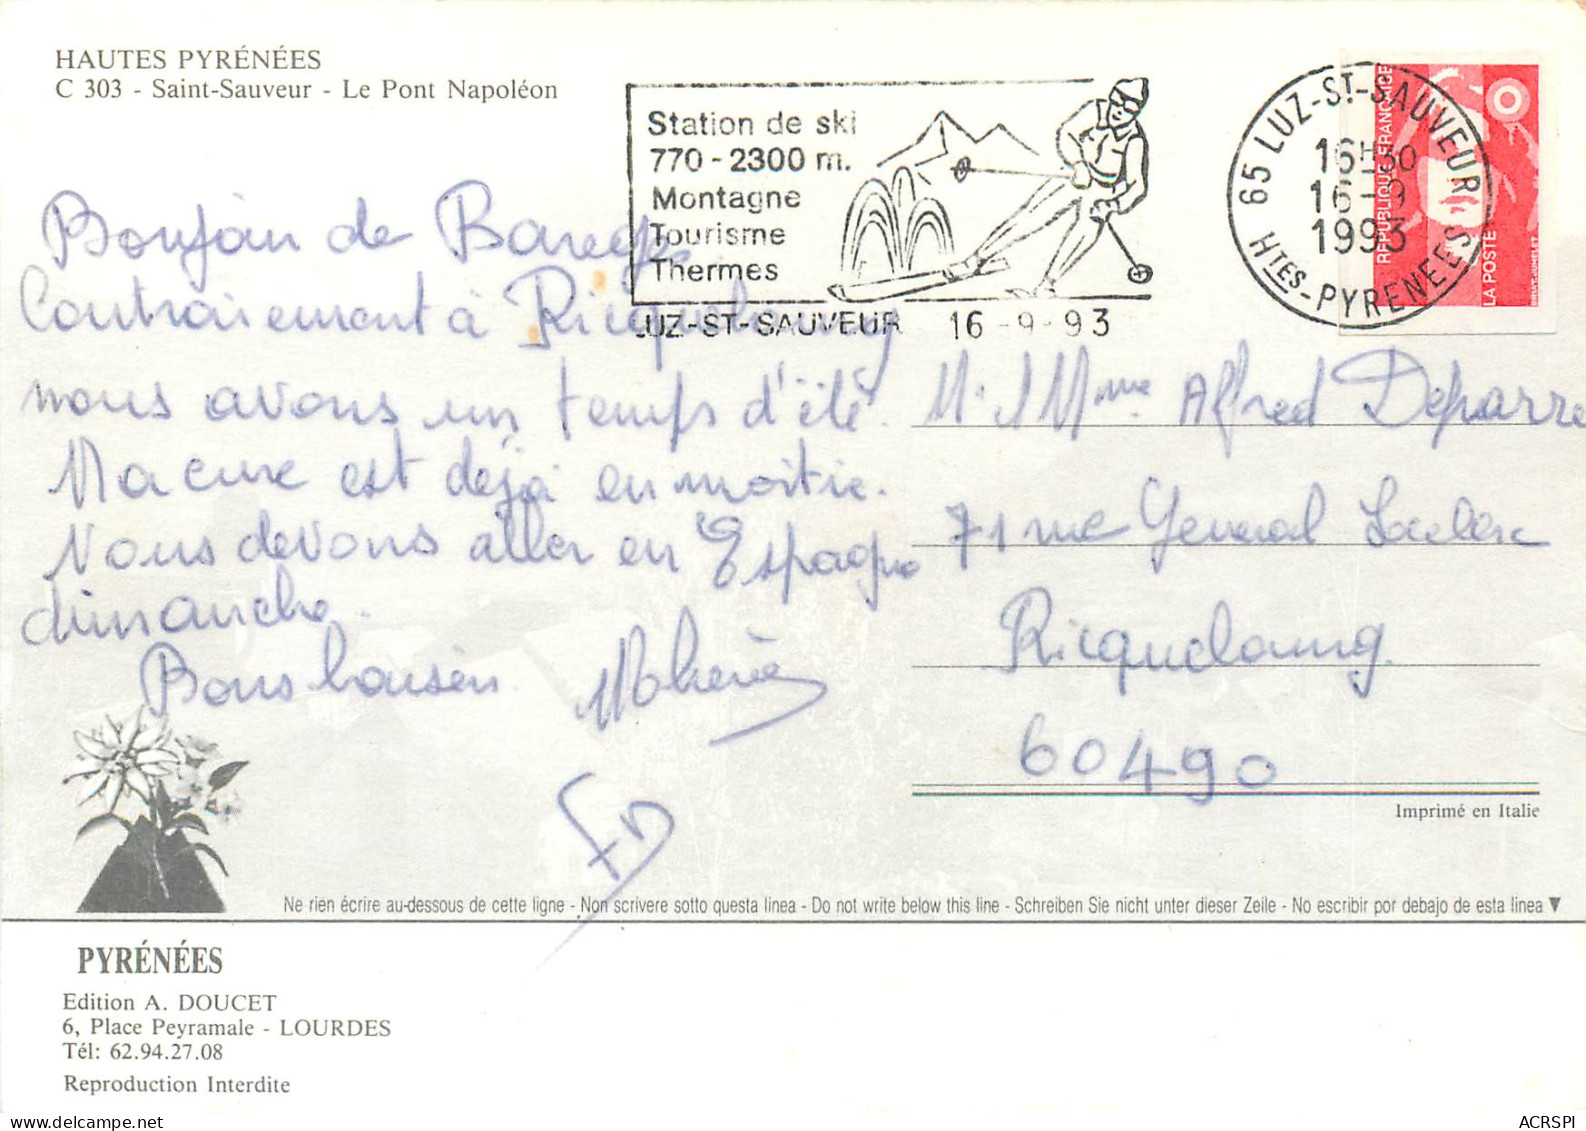 HAUTES PYRÉNÉES
C 303 - Saint-Sauveur - Le Pont Napoléon
Station de ski
770 - 2300 m.
Montagne
Tourisme
Thermes
LUZ-ST-SAUVEUR 16 - 9 - 93
65 LUZ-ST-SAUVEUR
16H30
16 - 9
1993
HTES-PYRENEES
REPUBLIQUE FRANÇAISE
LA POSTE
Bonjour de Barèges
Contrairement à Ricquebourg
nous avons un temps d'été.
Ma cure est déjà en moitié.
Nous devons aller en Espagne
dimanche.
Bons baisers
FD
M. Mme Alfred Deparre
71 rue General Leclerc
Ricquebourg
60490
Imprimé en Italie
Ne rien écrire au-dessous de cette ligne - Non scrivere sotto questa linea - Do not write below this line - Schreiben Sie nicht unter dieser Zeile - No escribir por debajo de esta linea ▼
PYRÉNÉES
Edition A. DOUCET
6, Place Peyramale - LOURDES
Tél: 62.94.27.08
Reproduction Interdite
ACRSPI